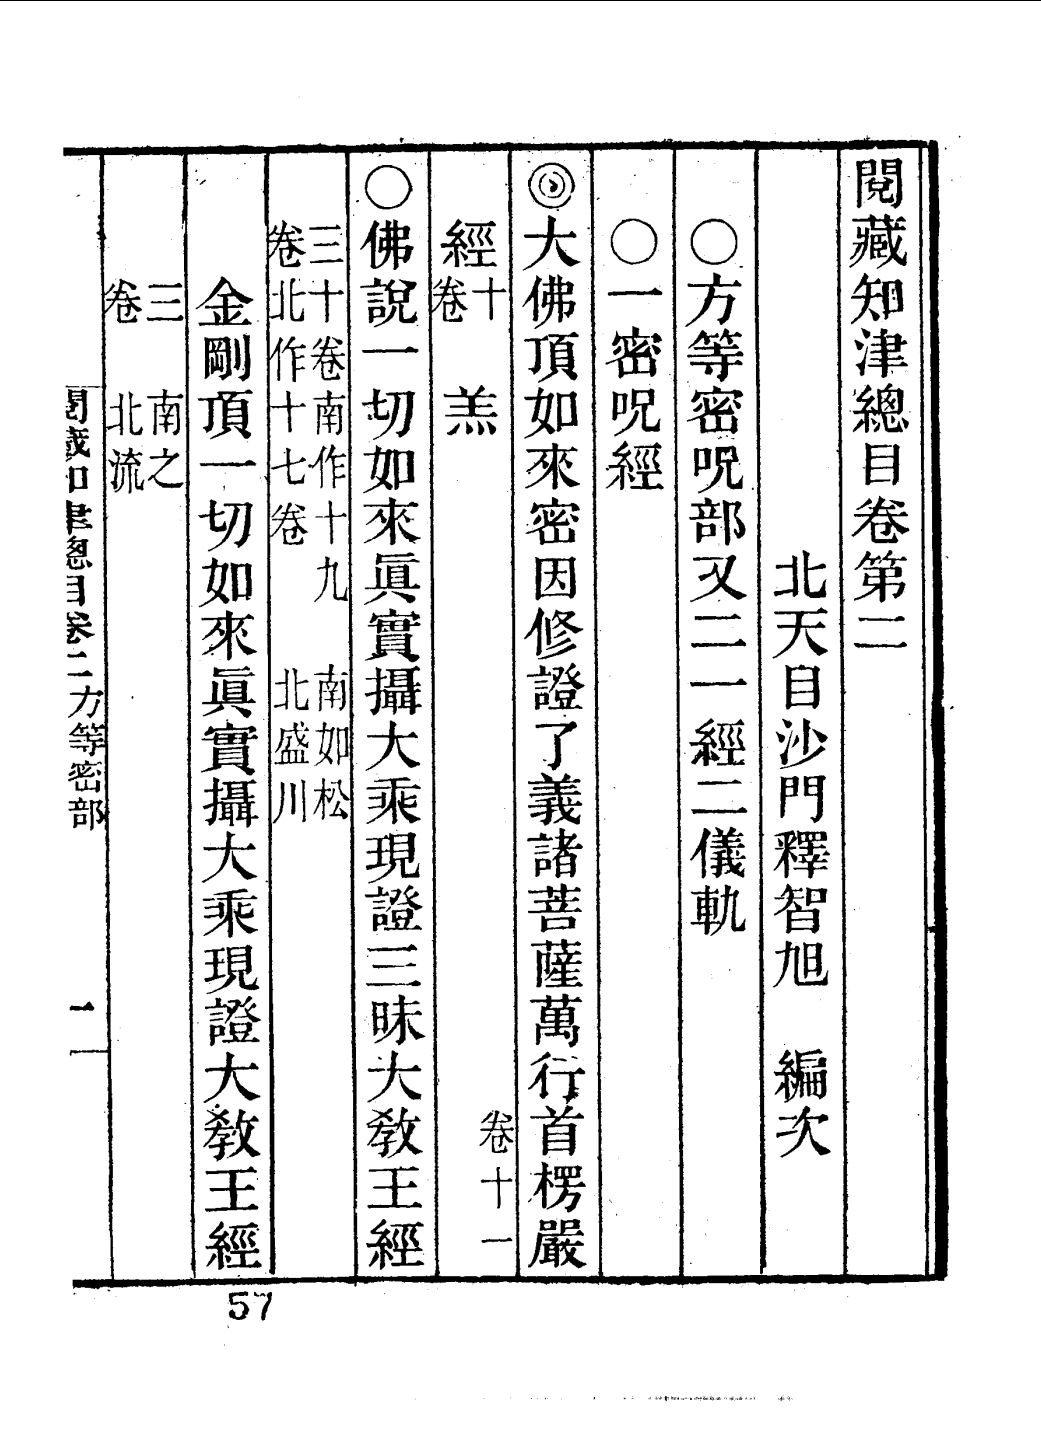 閱藏知津總目卷第二
北天目沙門釋智旭　編次
○方等密呪部又二一經二儀軌
○一密呪經
◎大佛頂如來密因修證了義諸菩薩萬行首楞嚴
經十卷　羔　卷十一
○佛說一切如來眞實攝大乘現證三昧大敎王經
三十卷南作十九　南如松
卷北作十七卷　北盛川
金剛頂一切如來眞實攝大乘現證大敎王經
三　南之
卷　北流
閱藏知津總目卷二方等密部　一
57